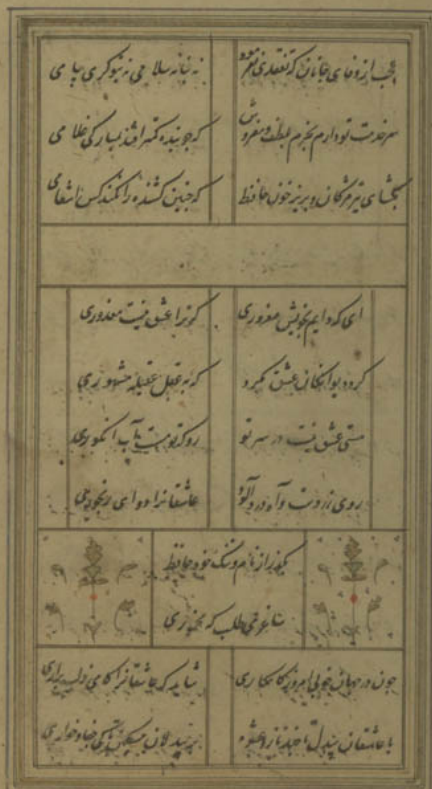 عجب از وفای جانان که تفقدی نفرمود
نه بنامه سلامی نه بنوکری پیامی
سر خدمت تو دارم بخرم بلطف و مفروش
که چو بنده کمتر افتد بمبارکی غلامی
بکشای تیر مژکان و بریز خون حافظ
که چنین کشنده را نکند کس انتقامی
ای که دایم بخویش مغروری
کر ترا عشق نیست معذوری
کرد دیوانکان عشق مکرد
که به عقل عقیله مشهوری
مستی عشق نیست در سر تو
رو که تو مست آب انکوری
روی زردست و آه دردآلود
عاشقانرا دوای رنجوری
بکذر از نام و ننک خود حافظ
ساغر می طلب که مخموری
چون در جهان خوبی امروز کامکاری
شاید که عاشقانرا کامی ز لب براری
با عاشقان بیدل تا چند ناز و عشوه
بر بیدلان مسکین تا کی جفا و خواری